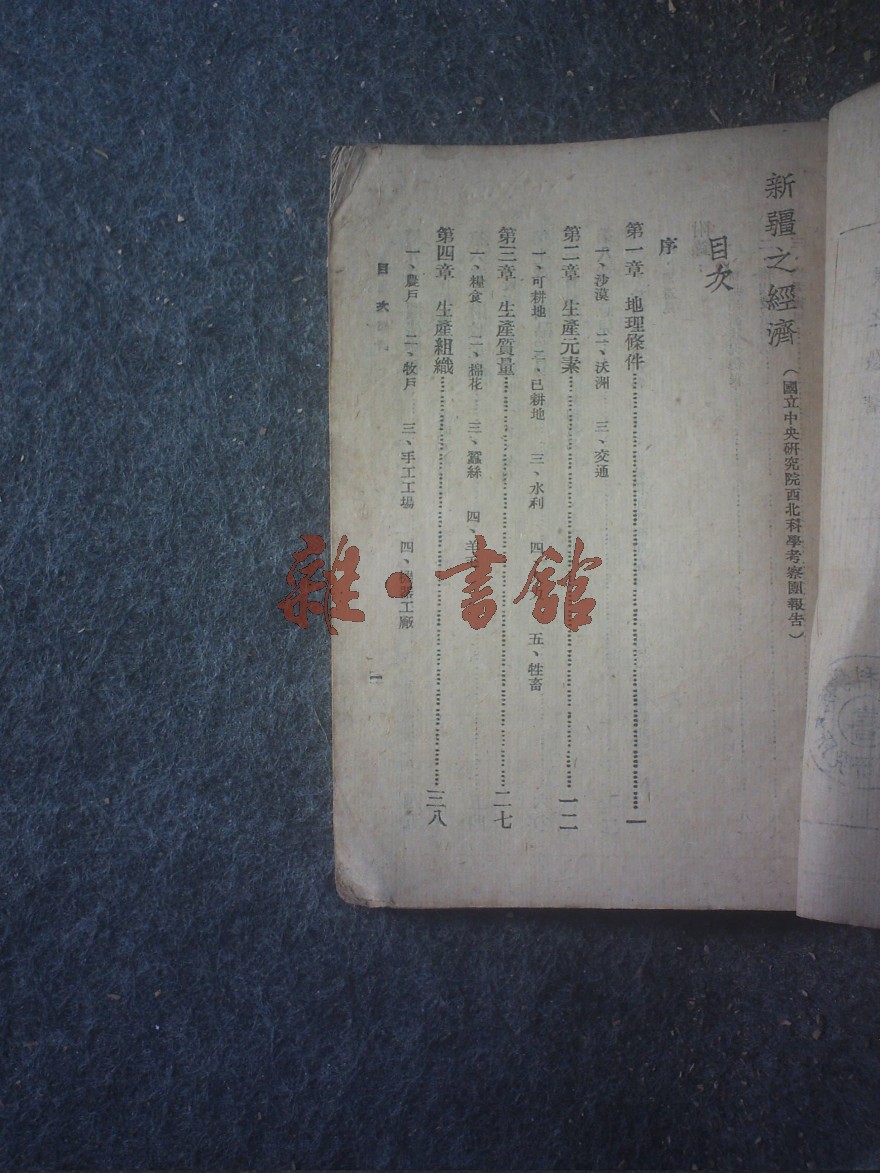 新疆之經濟（國立中央研究院西北科學考察團報告）
目次
序
第一章 地理條件……一
一、沙漠 二、沃洲 三、交通
第二章 生產元素……一二
一、可耕地 二、已耕地 三、水利 四、 五、牲畜
第三章 生產質量……二七
一、糧食 二、棉花 三、蠶絲 四、羊
第四章 生產組織……三八
一、農戶 二、牧戶 三、手工工場 四、工廠
目次
一
雜·書館